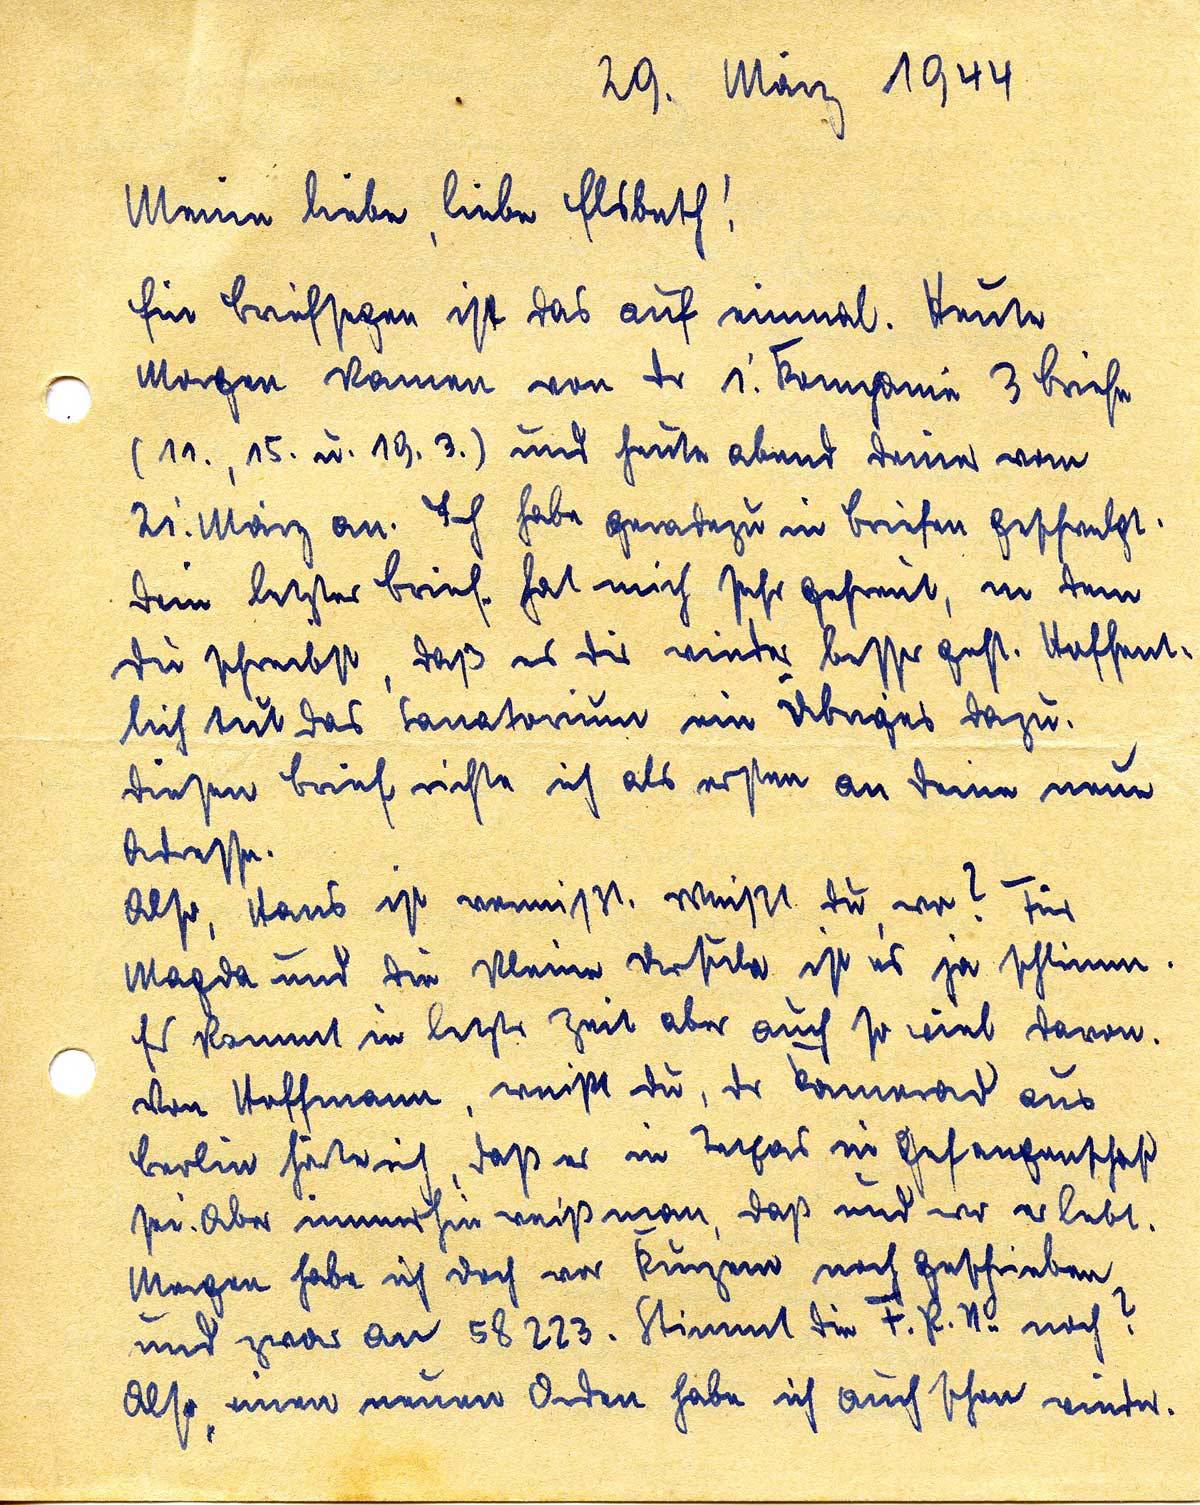 29. März 1944
Meine liebe, liebe Elsbeth!
Ein Briefsegen ist das auf einmal. Heute
Morgen kamen von der 1. Kompanie 3 Briefe
(11., 15. u. 19. 3.) und heute abend deiner vom
21. März an. Ich habe geradezu in Briefen geschwelgt.
Dein letzter Brief hat mich sehr gefreut, in dem
du schreibst, daß es dir wieder besser geht. Hoffent-
lich tut das Sanatorium ein Übriges dazu.
Diesen Brief richte ich als ersten an deine neue
Adresse.
Also, Hans ist vermißt. Weißt du, wo? Für
Magda und die kleine Ursula ist es ja schlimm.
Es kommt in letzter Zeit aber auch so viel davon.
Von Hoffmann, weißt du, der Kamerad aus
Berlin hörte ich, daß er in Texas in Gefangenschaft
sei. Aber immerhin weiß man, daß und wo er lebt.
habe ich doch vor Kurzem noch geschrieben
und zwar an 58223. Stimmt die F.P.Nr. noch?
Also, einen neuen Orden habe ich auch schon wieder.